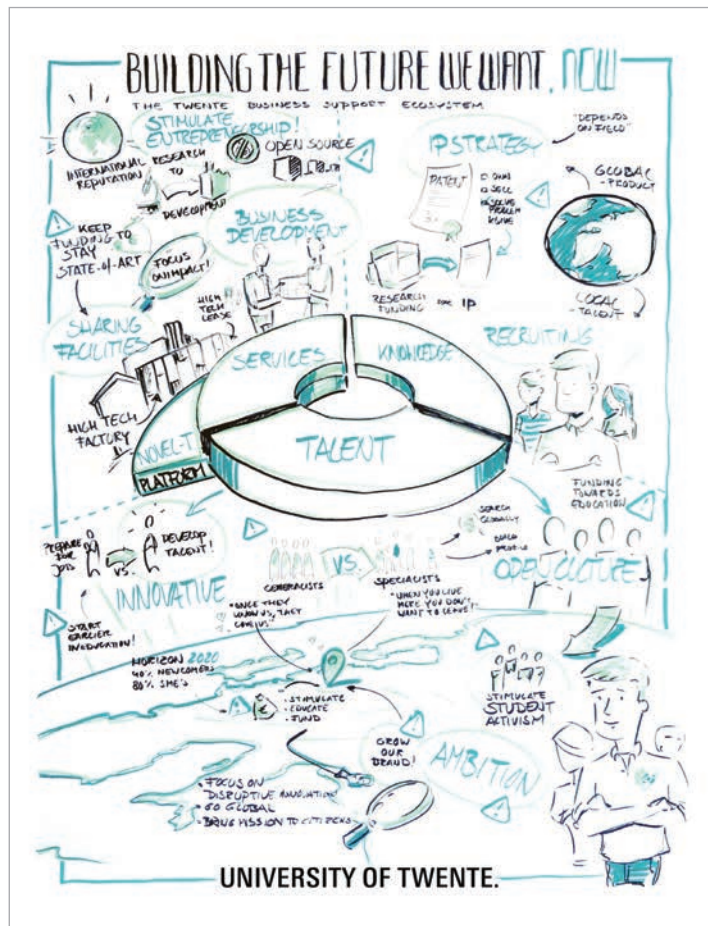 BUILDING THE FUTURE WE WANT. NOW
THE TWENTE BUSINESS SUPPORT ECOSYSTEM
STIMULATE
ENTREPRENEURSHIP!
INTERNATIONAL
REPUTATION
RESEARCH
TO
DEVELOPMENT
OPEN SOURCE
IP STRATEGY
"DEPENDS
ON FIELD"
PATENT
OWN
SELL
SOLVE
PROBLEM
GLOBAL
-PRODUCT
LOCAL
-TALENT
KEEP
FUNDING TO
STAY
STATE-of-ART
FOCUS
ON IMPACT!
BUSINESS
DEVELOPMENT
RESEARCH
FUNDING
IP
SHARING
FACILITIES
HIGH
TECH
LEASE
HIGH TECH
FACTORY
RECRUITING
SERVICES
KNOWLEDGE
TALENT
NOVEL-T
PLATFORM
FUNDING
TOWARDS
EDUCATION
PREPARE
FOR
JOB
VS.
DEVELOP
TALENT!
INNOVATIVE
START
EARLIER
IN EDUCATION!
GENERALISTS
VS.
SPECIALISTS
SEARCH
GLOBALLY
BUILD
PROFILE
OPEN CULTURE
"ONCE THEY
KNOW US, THEY
"WHEN YOU LIVE
HERE YOU DON'T
WANT TO LEAVE!"
HORIZON 2020
40% NEWCOMERS
80% SME'S
€
- STIMULATE
- EDUCATE
- FUND
STIMULATE
STUDENT
ACTIVISM
GROW
OUR
BRAND!
AMBITION
- FOCUS ON
DISRUPTIVE INNOVATION
- GO GLOBAL
- BRING MISSION TO CITIZENS
UNIVERSITY OF TWENTE.